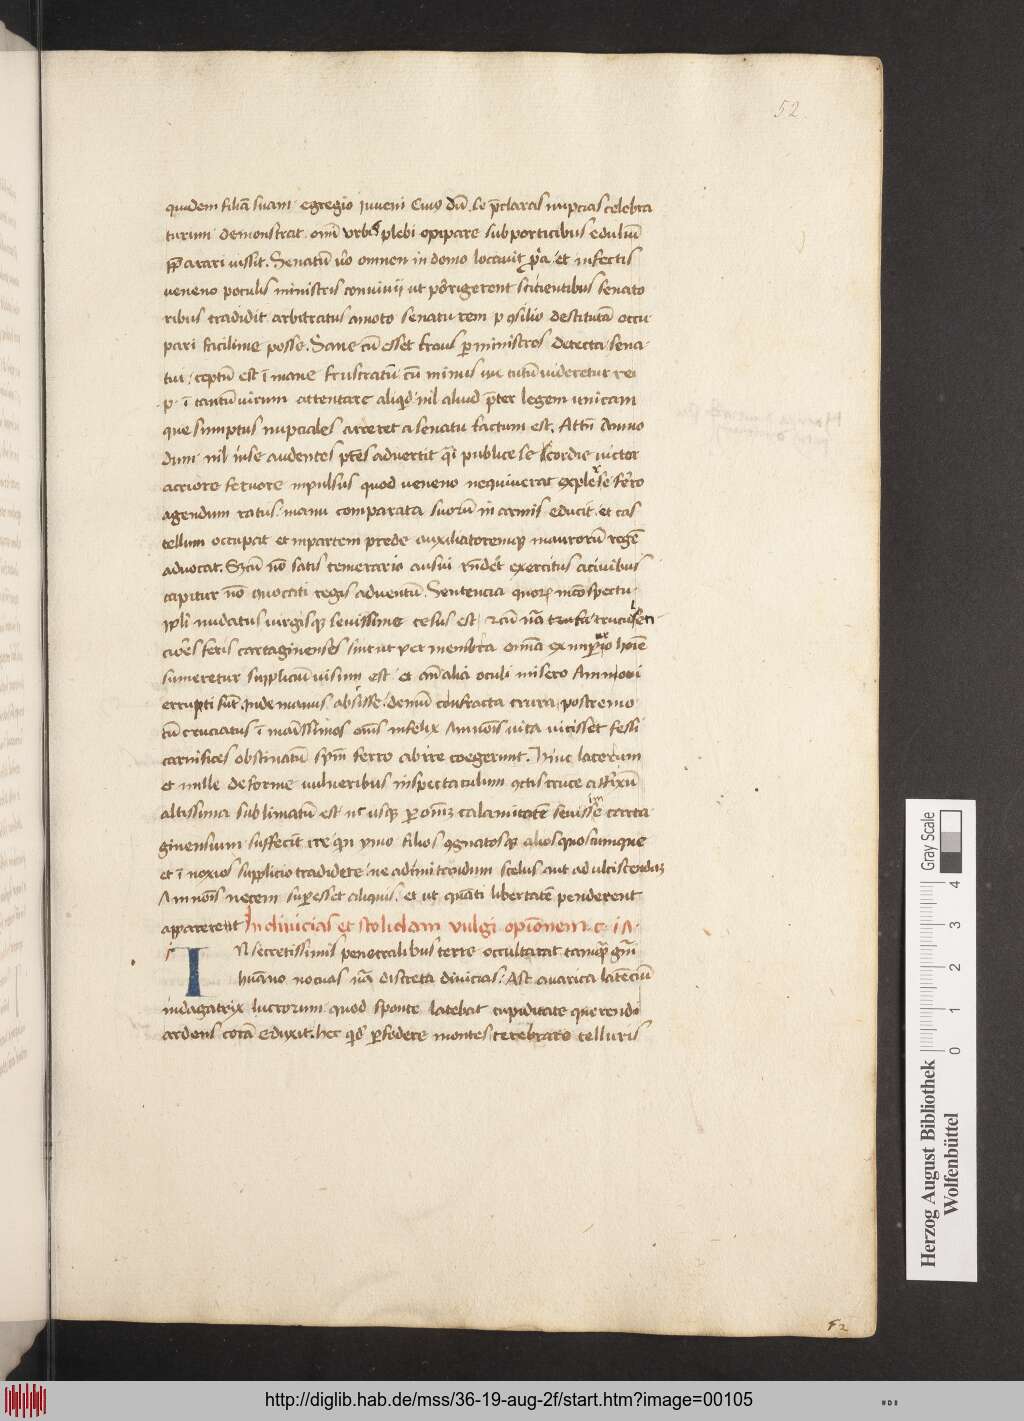 52
quidem filiā suam egregio iuveni cuiꝰ dū .Io p̄claras nupcias celebra
turum demonstrat. omī urbis plebi opipare sub porticibus eduliū
p̄parari iussit. Senatū ū̊o omnem in domo locavit p̄ria et infectis
veneno poculis ministris convivii ut pōrigerent scicientibus senato
ribus tradidit arbitratus amoto senatu rem p ꝯsilio destitutā occu
pari facilime posse. Sane cū esset fraus ꝑ ministros detecta sena
tui: ceptū est ī mane frustratū cū minus tutū videretur rei
p· ī tantū virum attentare aliqd nil aliud p̄ter legem unicam
que sumptus nupciales arceret a senatu factum est. Attn̄ Anno
dum nil in se audentes ptēs advertit publice se victor
acriore fervore inpulsus quod veneno nequiverat explesse ferro
agendum ratus. manu comparata suorū in armis educit et cas
tellum occupat et in partem prede auxiliatoremqꝫ maurorū regē
advocat. Sꝫ cū nō satis temerario ausui rn̄det exercitus a civibus
capitur nō evocati regis adventū. Sentencia quorꝫ in cōspectu
ipli nudatus virgisqꝫ sevissime cesus est
cives feris cartaginenses sint ut p et membra omnīa ex hoīe
sumeretur suppliciū visum est et oculi misero Ammoni
errupti sūt. Inde manus abscisse: demū confracta crura postremo
tū cruciatus ī inanissimos om̄is infelix Amnōis vita vicisset fessi
carnifices obstinatū spm̄ ferro abire coegerunt. Huic lacerum
et mille deforme vulneribus in spectaculum ꝯctis cruce affixū
altissima sublimatū est nc̄ usqꝫ ꝑ om̄ꝫ calamitatē sevisse carta
ginensium suffecit ire qn̄ ymo filios ꝯgnatosqꝫ alios quoscumque
et ī noxios supplicio tradidere: ne ad imitandum scelus aut ad ulciscendaꝫ
Amnōis necem suꝑesset aliquis. et ut quāti libertatē penderent
apparerent In divicias et stolidam vulgi opīonem c· iA·
IN secretissimis penetralibus terre occultarat tamqꝫ gn̄i
hūano nocuas nā discreta divicias. Ast avarica latēciū
indagatrix lucrorum quod sponte latebat cupiditate querendi
ardens corā eduxit. hec qd ꝑfodere montes terebrare telluris
52
Gray Scale
0 1 2 3 4
Herzog August Bibliothek
Wolfenbüttel
http://diglib.hab.de/mss/36-19-aug-2f/start.htm?image=00105